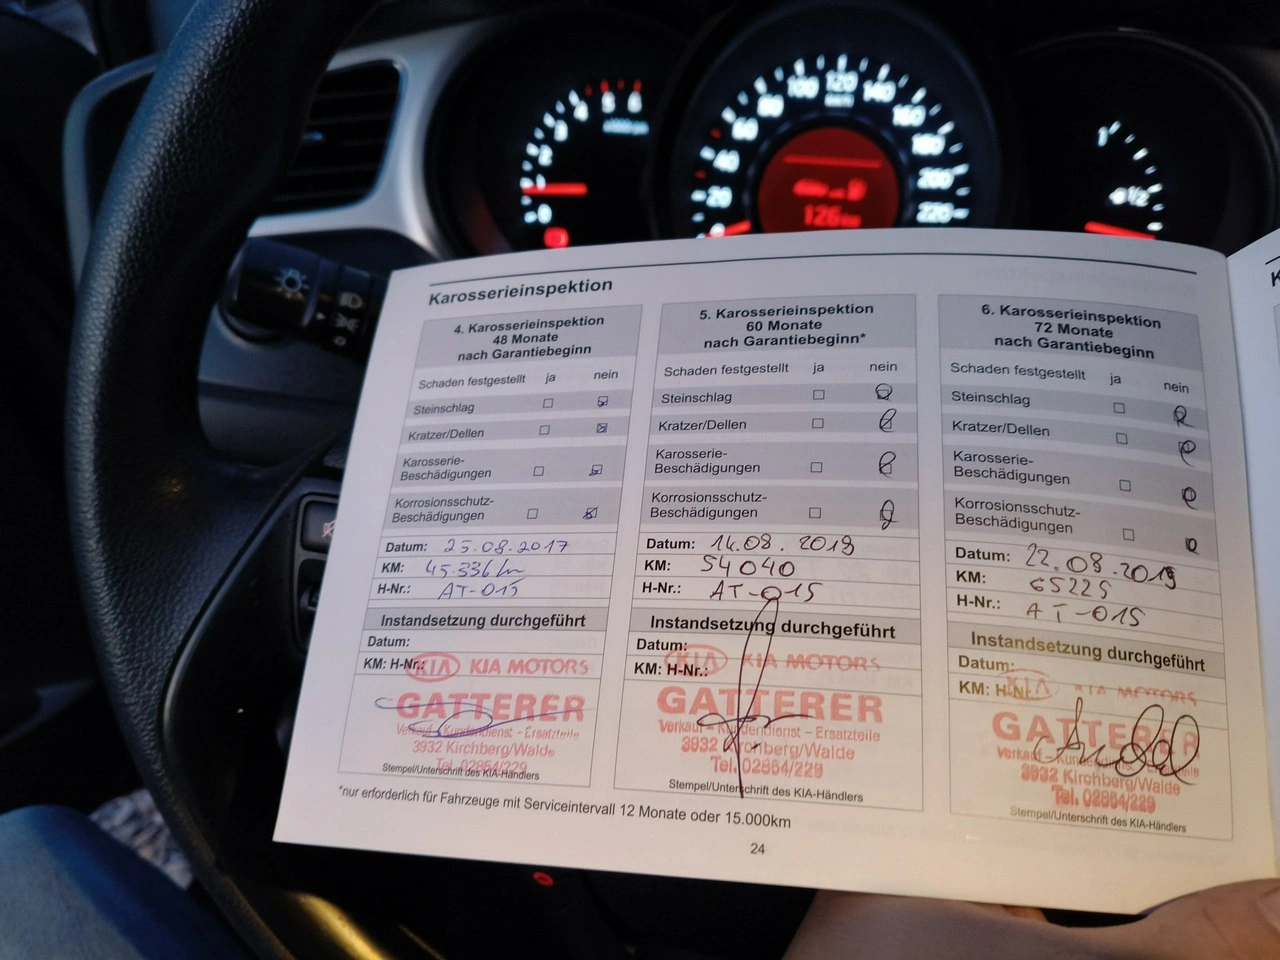 5 6
4
3
2
1
0
100 120 140
km/h
80
160
60
180
40
200
20
220
0
126 km
1
1/2
Karosserieinspektion
4. Karosserieinspektion
48 Monate
nach Garantiebeginn
Schaden festgestellt ja nein
Steinschlag
Kratzer/Dellen
Karosserie-
Beschädigungen
Korrosionsschutz-
Beschädigungen
Datum: 25.08.2017
KM: 45.336 km
H-Nr.: AT-015
Instandsetzung durchgeführt
Datum:
KM: H-Nr.:
KIA KIA MOTORS
GATTERER
Verkauf - Kundendienst - Ersatzteile
3932 Kirchberg/Walde
Tel. 02854/229
Stempel/Unterschrift des KIA-Händlers
5. Karosserieinspektion
60 Monate
nach Garantiebeginn*
Schaden festgestellt ja nein
Steinschlag
Kratzer/Dellen
Karosserie-
Beschädigungen
Korrosionsschutz-
Beschädigungen
Datum: 14.08.2018
KM: 54040
H-Nr.: AT-015
Instandsetzung durchgeführt
Datum:
KM: H-Nr.:
KIA KIA MOTORS
GATTERER
Verkauf - Kundendienst - Ersatzteile
3932 Kirchberg/Walde
Tel. 02854/229
Stempel/Unterschrift des KIA-Händlers
6. Karosserieinspektion
72 Monate
nach Garantiebeginn
Schaden festgestellt ja nein
Steinschlag
Kratzer/Dellen
Karosserie-
Beschädigungen
Korrosionsschutz-
Beschädigungen
Datum: 22.08.2019
KM: 65225
H-Nr.: AT-015
Instandsetzung durchgeführt
Datum:
KM: H-Nr.:
KIA KIA MOTORS
GATTERER
Verkauf - Kundendienst - Ersatzteile
3932 Kirchberg/Walde
Tel. 02854/229
Stempel/Unterschrift des KIA-Händlers
*nur erforderlich für Fahrzeuge mit Serviceintervall 12 Monate oder 15.000km
24